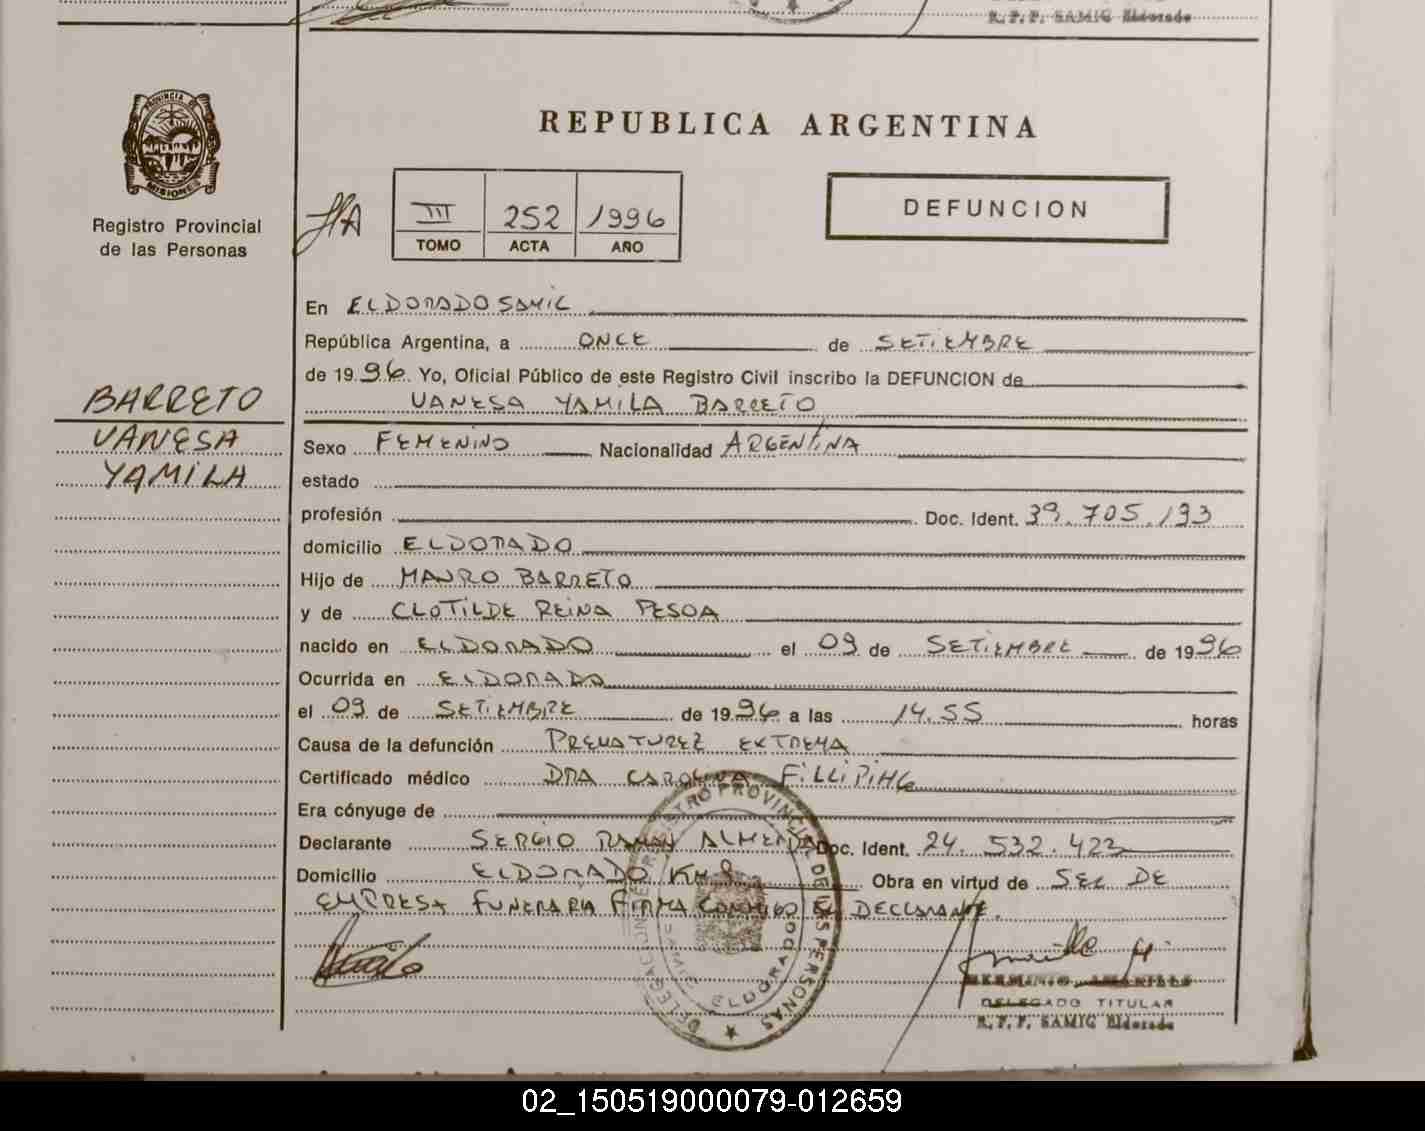 R. P. P. SAMIC Eldorado
PROVINCIA DE
MISIONES
Registro Provincial
de las Personas
REPUBLICA ARGENTINA
III 252 1996
TOMO ACTA AÑO
DEFUNCION
En ELDORADO SAMIC
República Argentina, a ONCE de SETIEMBRE
de 1996. Yo, Oficial Público de este Registro Civil inscribo la DEFUNCION de
VANESA YAMILA BARRETO
BARRETO
VANESA
YAMILA
Sexo FEMENINO Nacionalidad ARGENTINA
estado
profesión Doc. Ident. 39.705.193
domicilio ELDORADO
Hijo de MAURO BARRETO
y de CLOTILDE REINA PESOA
nacido en ELDORADO el 09 de SETIEMBRE de 1996
Ocurrida en ELDORADO
el 09 de SETIEMBRE de 1996 a las 14.55 horas
Causa de la defunción PREMATUREZ EXTREMA
Certificado médico DRA CAROLINA
Era cónyuge de
Declarante SERGIO RAMON ALMEIDA Doc. Ident. 24.532.423
Domicilio ELDORADO KM 9 Obra en virtud de SER DE
EMPRESA FUNERARIA FIRMA CONMIGO EL DECLARANTE.
DELEGACION REGISTRO PROVINCIAL DE LAS PERSONAS
SAMIC ELDORADO
HERMINIO AMARILLO
DELEGADO TITULAR
R. P. P. SAMIC Eldorado
02_150519000079-012659